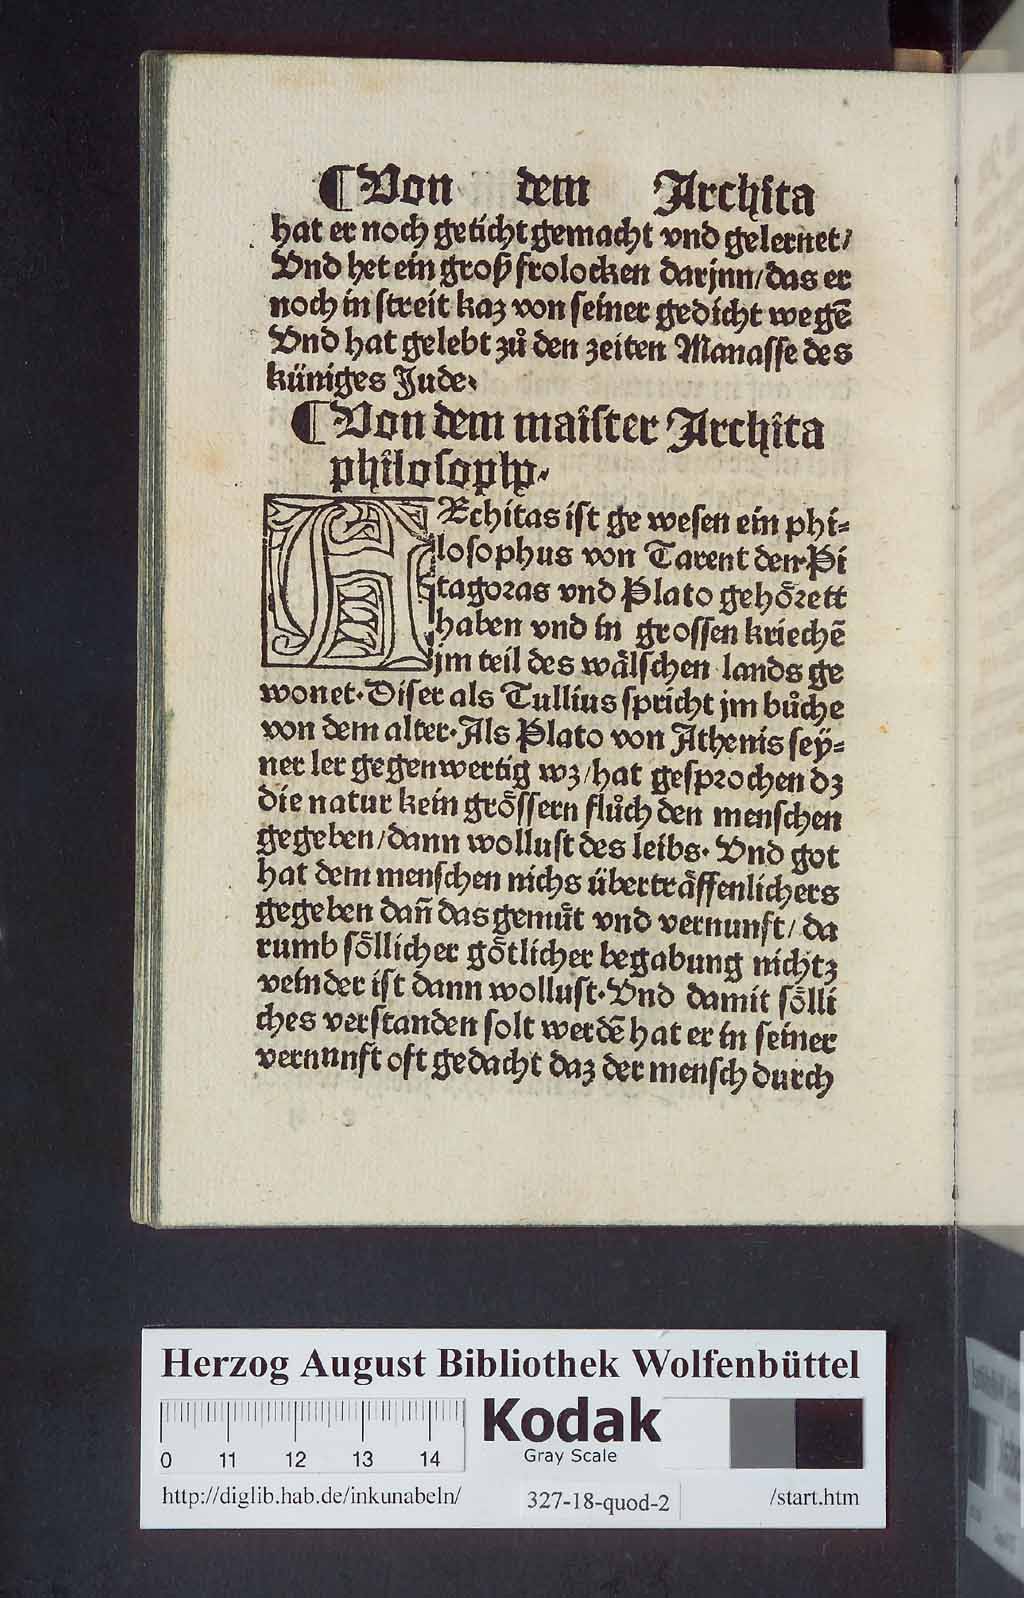 ¶Von dem Archita
hat er noch geticht gemacht vnd gelernet/
Vnd het ein groß frolocken darjnn/das er
noch in streit kaz von seiner gedicht wegē
Vnd hat gelebt zů den zeiten Manasse des
küniges Jude.
¶Von dem maister Archita
philosopho.
ARchitas ist ge wesen ein phi-
losophus von Tarent den Pi
tagoras vnd Plato gehörett
haben vnd in grossen kriechē
jm teil des wälschen lands ge
wonet. Diser als Tullius spricht jm bůche
von dem alter. Als Plato von Athenis sey-
ner ler gegenwertig wz/hat gesprochen dz
die natur kein grössern flůch den menschen
gegeben/dann wollust des leibs. Vnd got
hat dem menschen nichs überträffenlichers
gegeben dañ das gemüt vnd vernunft/da
rumb söllicher götlicher begabung nichtz
veinder ist dann wollust. Vnd damit sölli
ches verstanden solt werdē hat er in seiner
vernunft oft gedacht daz der mensch durch
Herzog August Bibliothek Wolfenbüttel
Kodak
Gray Scale
0 11 12 13 14
http://diglib.hab.de/inkunabeln/ 327-18-quod-2 /start.htm